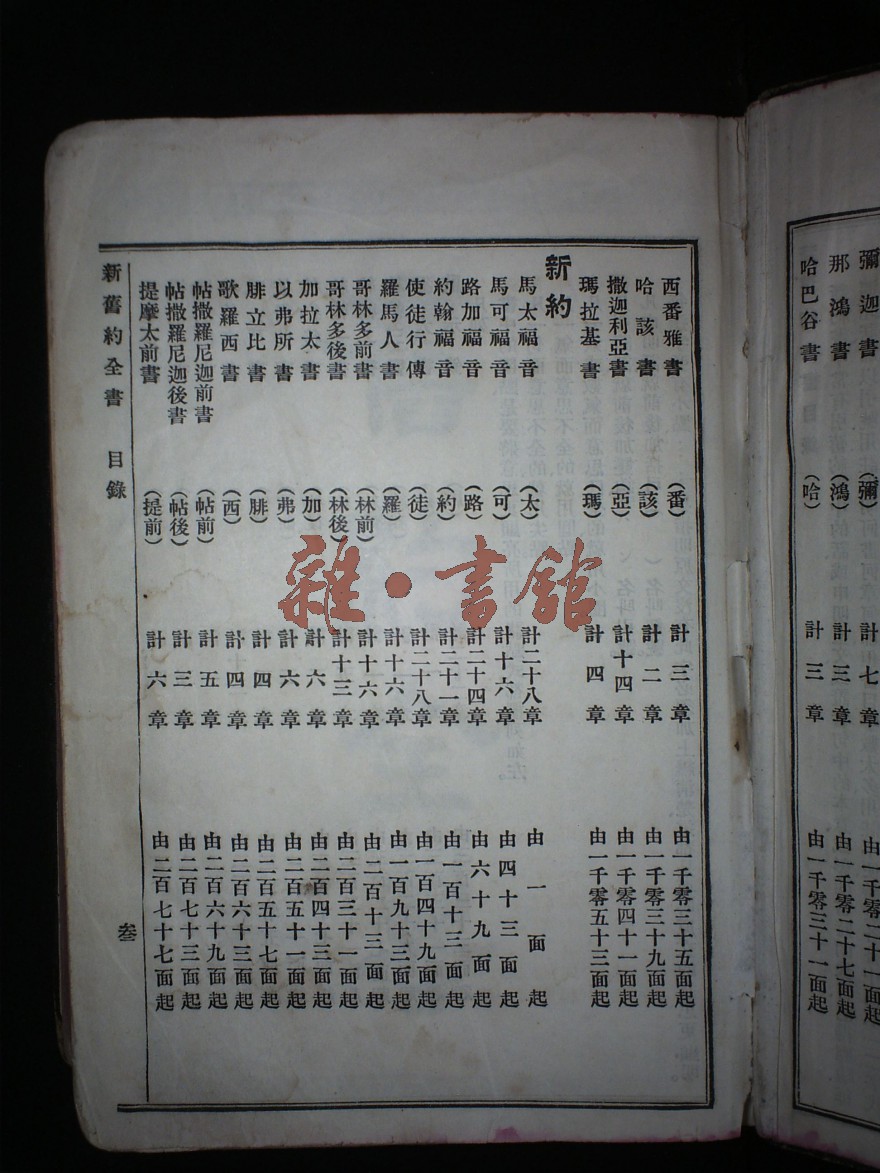 彌迦書 （彌） 計七章 由一千零二十一面起
那鴻書 （鴻） 計三章 由一千零二十七面起
哈巴谷書 （哈） 計三章 由一千零三十一面起
西番雅書 （番） 計三章 由一千零三十五面起
哈該書 （該） 計二章 由一千零三十九面起
撒迦利亞書 （亞） 計十四章 由一千零四十一面起
瑪拉基書 （瑪） 計四章 由一千零五十三面起
新約
馬太福音 （太） 計二十八章 由一面起
馬可福音 （可） 計十六章 由四十三面起
路加福音 （路） 計二十四章 由六十九面起
約翰福音 （約） 計二十一章 由一百十三面起
使徒行傳 （徒） 計二十八章 由一百四十九面起
羅馬人書 （羅） 計十六章 由一百九十三面起
哥林多前書 （林前） 計十六章 由二百十三面起
哥林多後書 （林後） 計十三章 由二百三十一面起
加拉太書 （加） 計六章 由二百四十三面起
以弗所書 （弗） 計六章 由二百五十一面起
腓立比書 （腓） 計四章 由二百五十七面起
歌羅西書 （西） 計四章 由二百六十三面起
帖撒羅尼迦前書 （帖前） 計五章 由二百六十九面起
帖撒羅尼迦後書 （帖後） 計三章 由二百七十三面起
提摩太前書 （提前） 計六章 由二百七十七面起
新舊約全書 目錄 叁
雜·書館